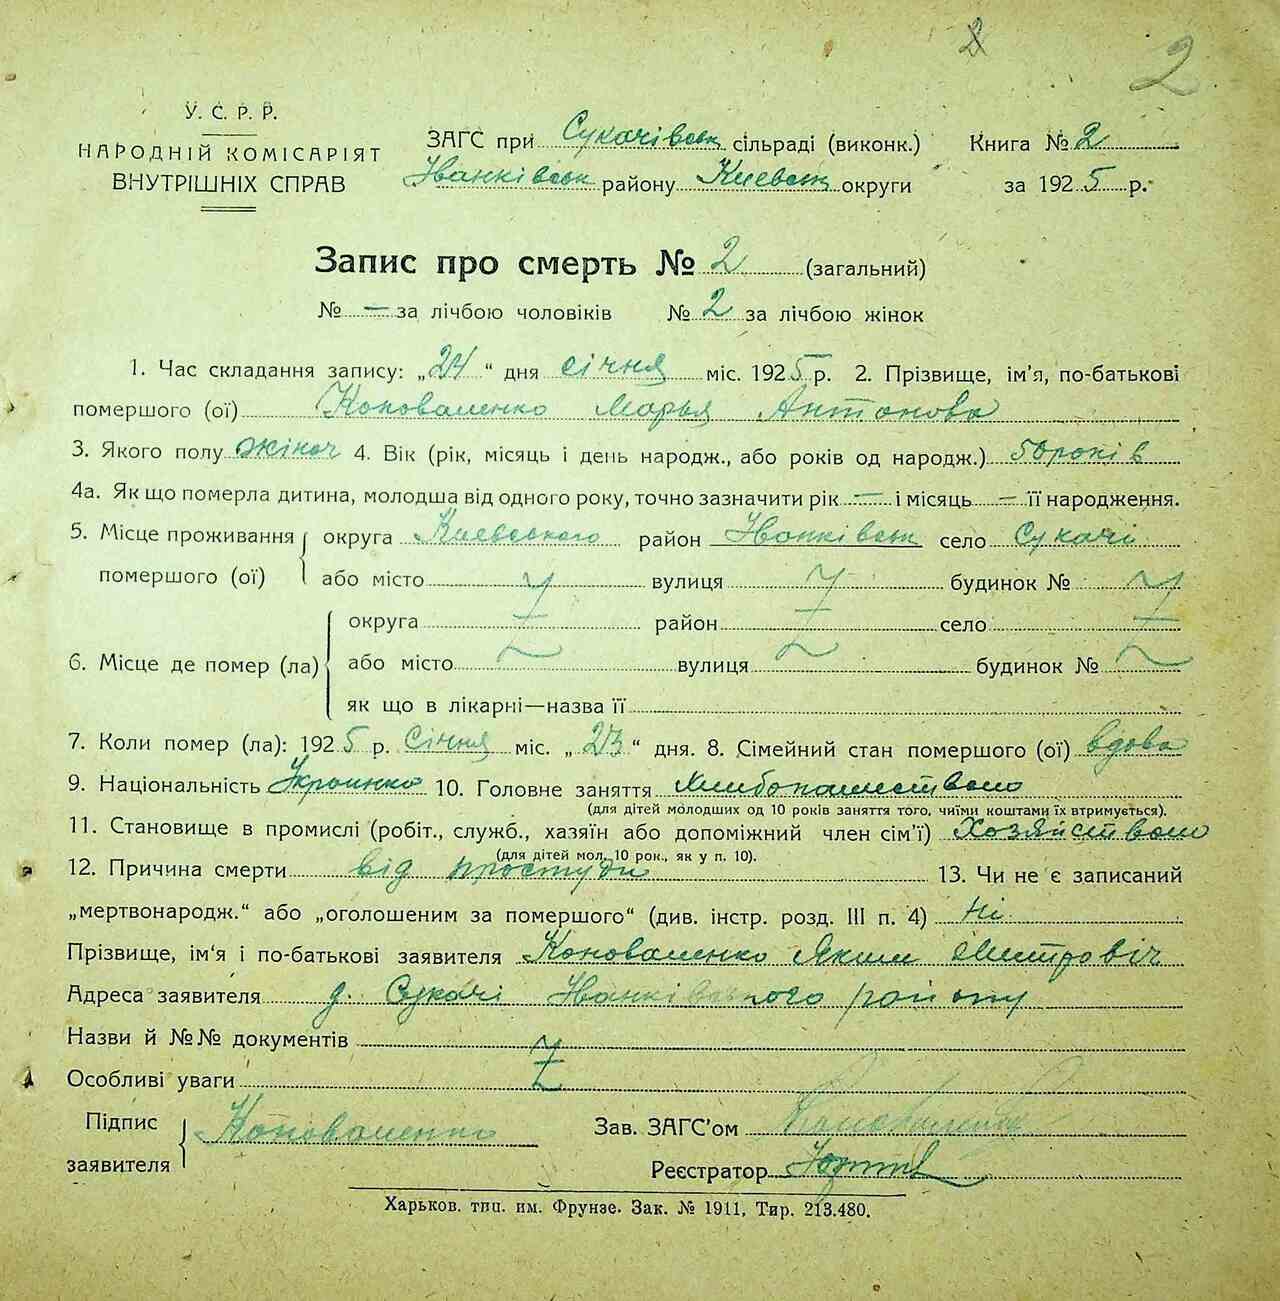 2
2
У. С. Р. Р.
НАРОДНІЙ КОМІСАРІЯТ
ВНУТРІШНІХ СПРАВ
ЗАГС при Сукачівськ сільраді (виконк.)
Іванківськ району Киевськ округи
Книга № 2
за 1925 р.
Запис про смерть № 2 (загальний)
№ — за лічбою чоловіків № 2 за лічбою жінок
1. Час складання запису: „24“ дня січня міс. 1925 р. 2. Прізвище, ім'я, по-батькові
помершого (ої) Коноваленко Марья Антонова
3. Якого полу жіноч 4. Вік (рік, місяць і день народж., або років од народж.) 50 років
4а. Як що померла дитина, молодша від одного року, точно зазначити рік — і місяць — її народження.
5. Місце проживання помершого (ої) округа Киевського район Іванківськ село Сукачі
або місто вулиця будинок №
6. Місце де помер (ла) округа район село
або місто вулиця будинок №
як що в лікарні—назва її
7. Коли помер (ла): 1925 р. Січня міс. „23“ дня. 8. Сімейний стан помершого (ої) вдова
9. Національність Украинка 10. Головне заняття Хлибопашеством
(для дітей молодших од 10 років заняття того, чиїми коштами їх втримується).
11. Становище в промислі (робіт., служб., хазяїн або допоміжний член сім'ї) Хозяйством
(для дітей мол. 10 рок., як у п. 10).
12. Причина смерти від простуди 13. Чи не є записаний
„мертвонародж.“ або „оголошеним за помершого“ (див. інстр. розд. III п. 4) Ні
Прізвище, ім'я і по-батькові заявителя Коноваленко Яким Дмитровіч
Адреса заявителя д. Сукачі Іванківського району
Назви й №№ документів
Особливі уваги
Підпис заявителя Коноваленко
Зав. ЗАГС'ом
Реєстратор
Харьков. тип. им. Фрунзе. Зак. № 1911, Тир. 213.480.